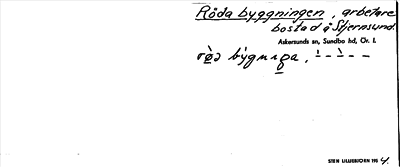 Röda byggningen, arbetare
bostad å Stjernsund.
Askersunds sn, Sundbo hd, Ör. l.
STEN LILLIEBJÖRN 195 4.